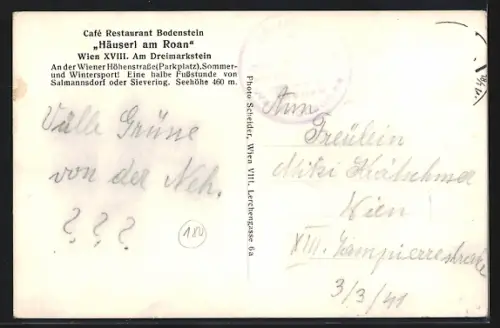 Café Restaurant Bodenstein
„Häuserl am Roan"
Wien XVIII. Am Dreimarkstein
An der Wiener Höhenstraße(Parkplatz).Sommer-
und Wintersport! Eine halbe Fußstunde von
Salmannsdorf oder Sievering. Seehöhe 460 m.
Photo Scheider, Wien VIII, Lerchengasse 6a
Viele Grüsse
von der Neh.
? ? ?
180
Freulein
Mitzi
Wien
XIII.
3/3/41